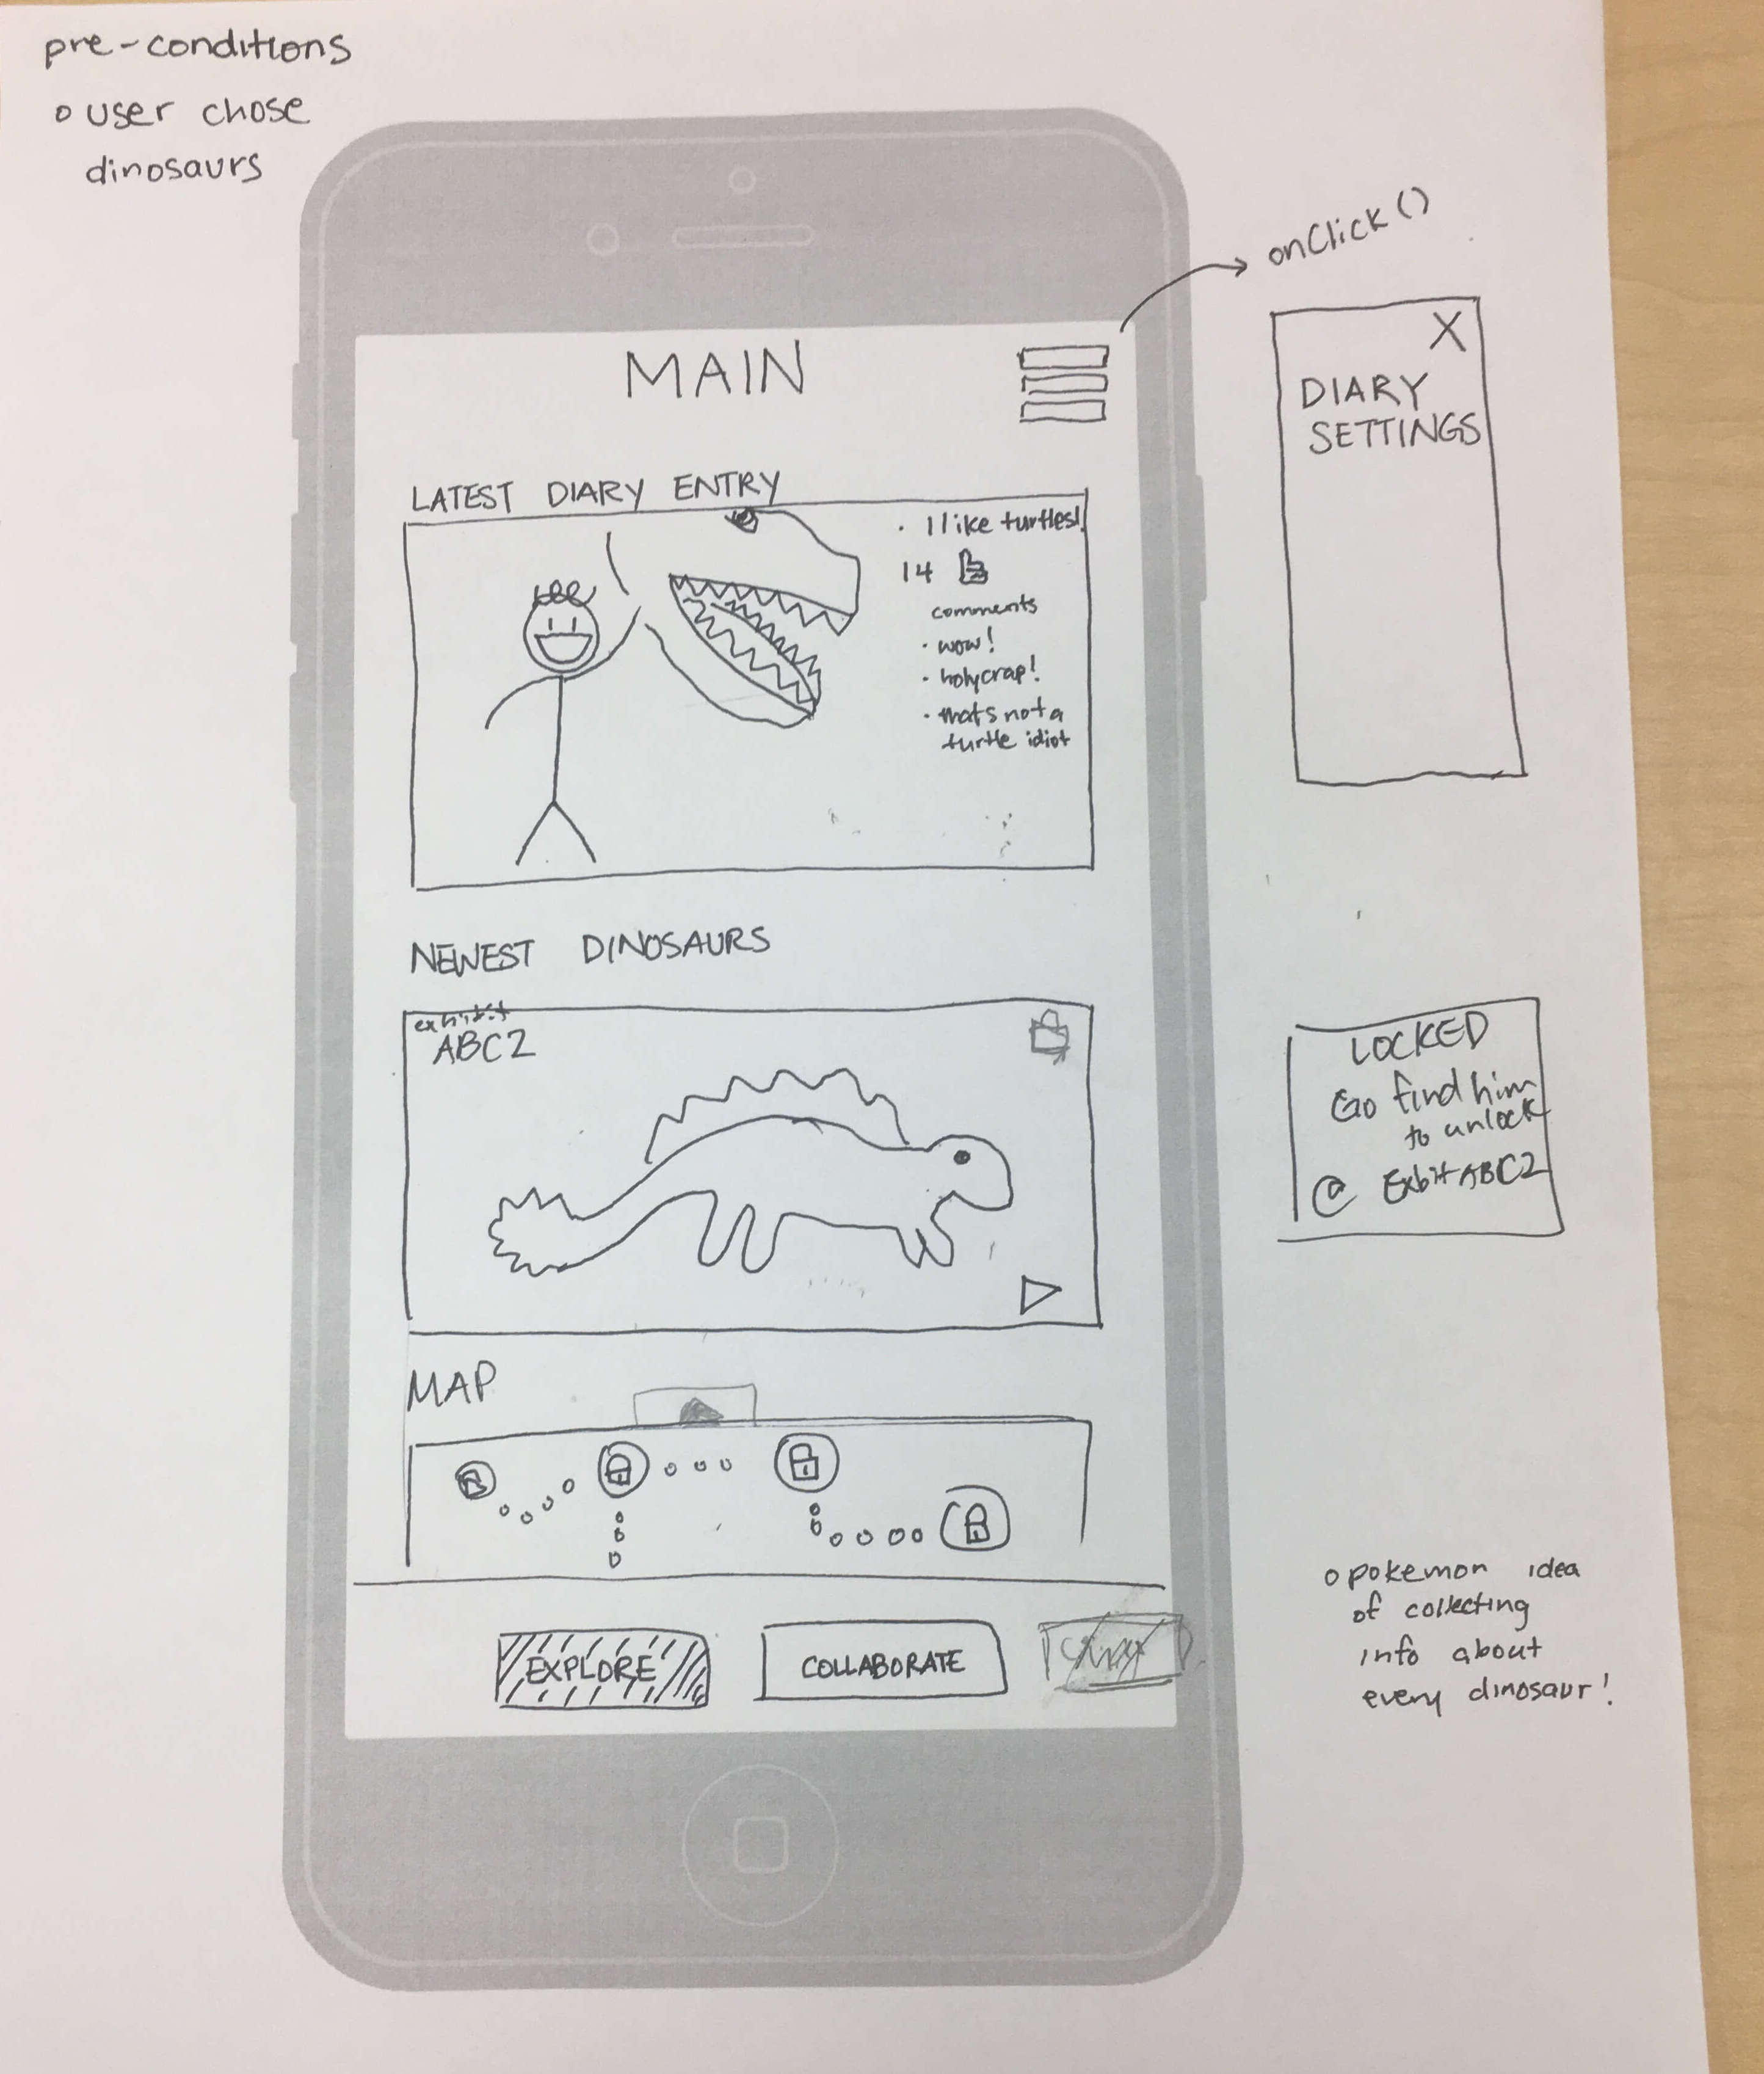 pre-conditions
o user chose
dinosaurs
onClick()
MAIN
X
DIARY
SETTINGS
LATEST DIARY ENTRY
· I like turtles!
14
comments
· wow!
· holycrap!
· thats not a
turtle idiot
NEWEST DINOSAURS
exhibit
ABC2
LOCKED
Go find him
to unlock
@ Exbit ABC2
MAP
EXPLORE
COLLABORATE
o pokemon idea
of collecting
info about
every dinosaur!